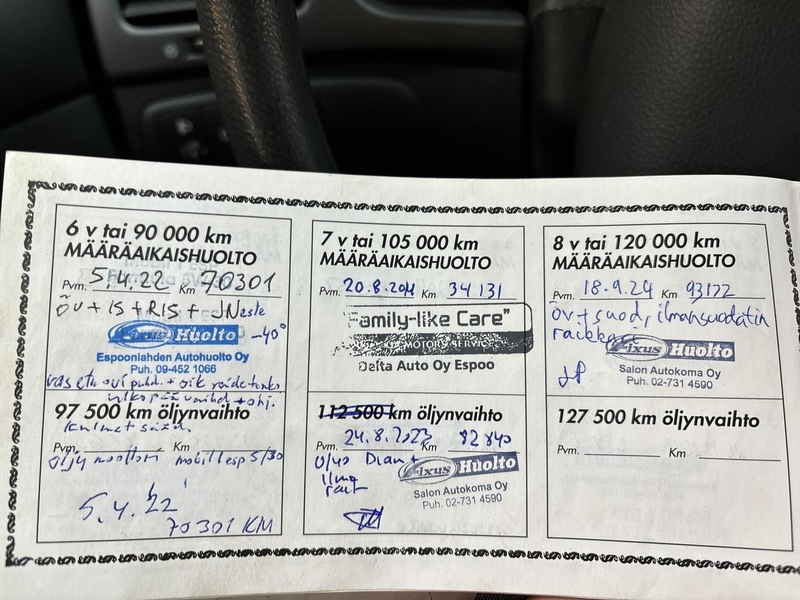 6 v tai 90 000 km
MÄÄRÄAIKAISHUOLTO
Pvm. 5.4.22 Km 70301
ÖV + IS + RIS + JNeste
Fixus Huolto -40°
Espoonlahden Autohuolto Oy
Puh. 09-452 1066
vas etu ovi puhd. + oik raidetanko
ulkopää vaihd + ohj.
kulmat sääd.
97 500 km öljynvaihto
Pvm. Km
öljy moottori mobil 1 esp 5/30
5.4.22
70301 KM
7 v tai 105 000 km
MÄÄRÄAIKAISHUOLTO
Pvm. 20.8.2011 Km 34 131
"Family-like Care"
KIA MOTORS SERVICE
Delta Auto Oy Espoo
112 500 km öljynvaihto
Pvm. 24.8.2023 Km 82840
0/40
Ilma
rait
Fixus Huolto
Salon Autokoma Oy
Puh. 02-731 4590
8 v tai 120 000 km
MÄÄRÄAIKAISHUOLTO
Pvm. 18.9.24 Km 93172
öv + suod, ilmansuodatin
raikkari
Fixus Huolto
JP
Salon Autokoma Oy
Puh. 02-731 4590
127 500 km öljynvaihto
Pvm. Km